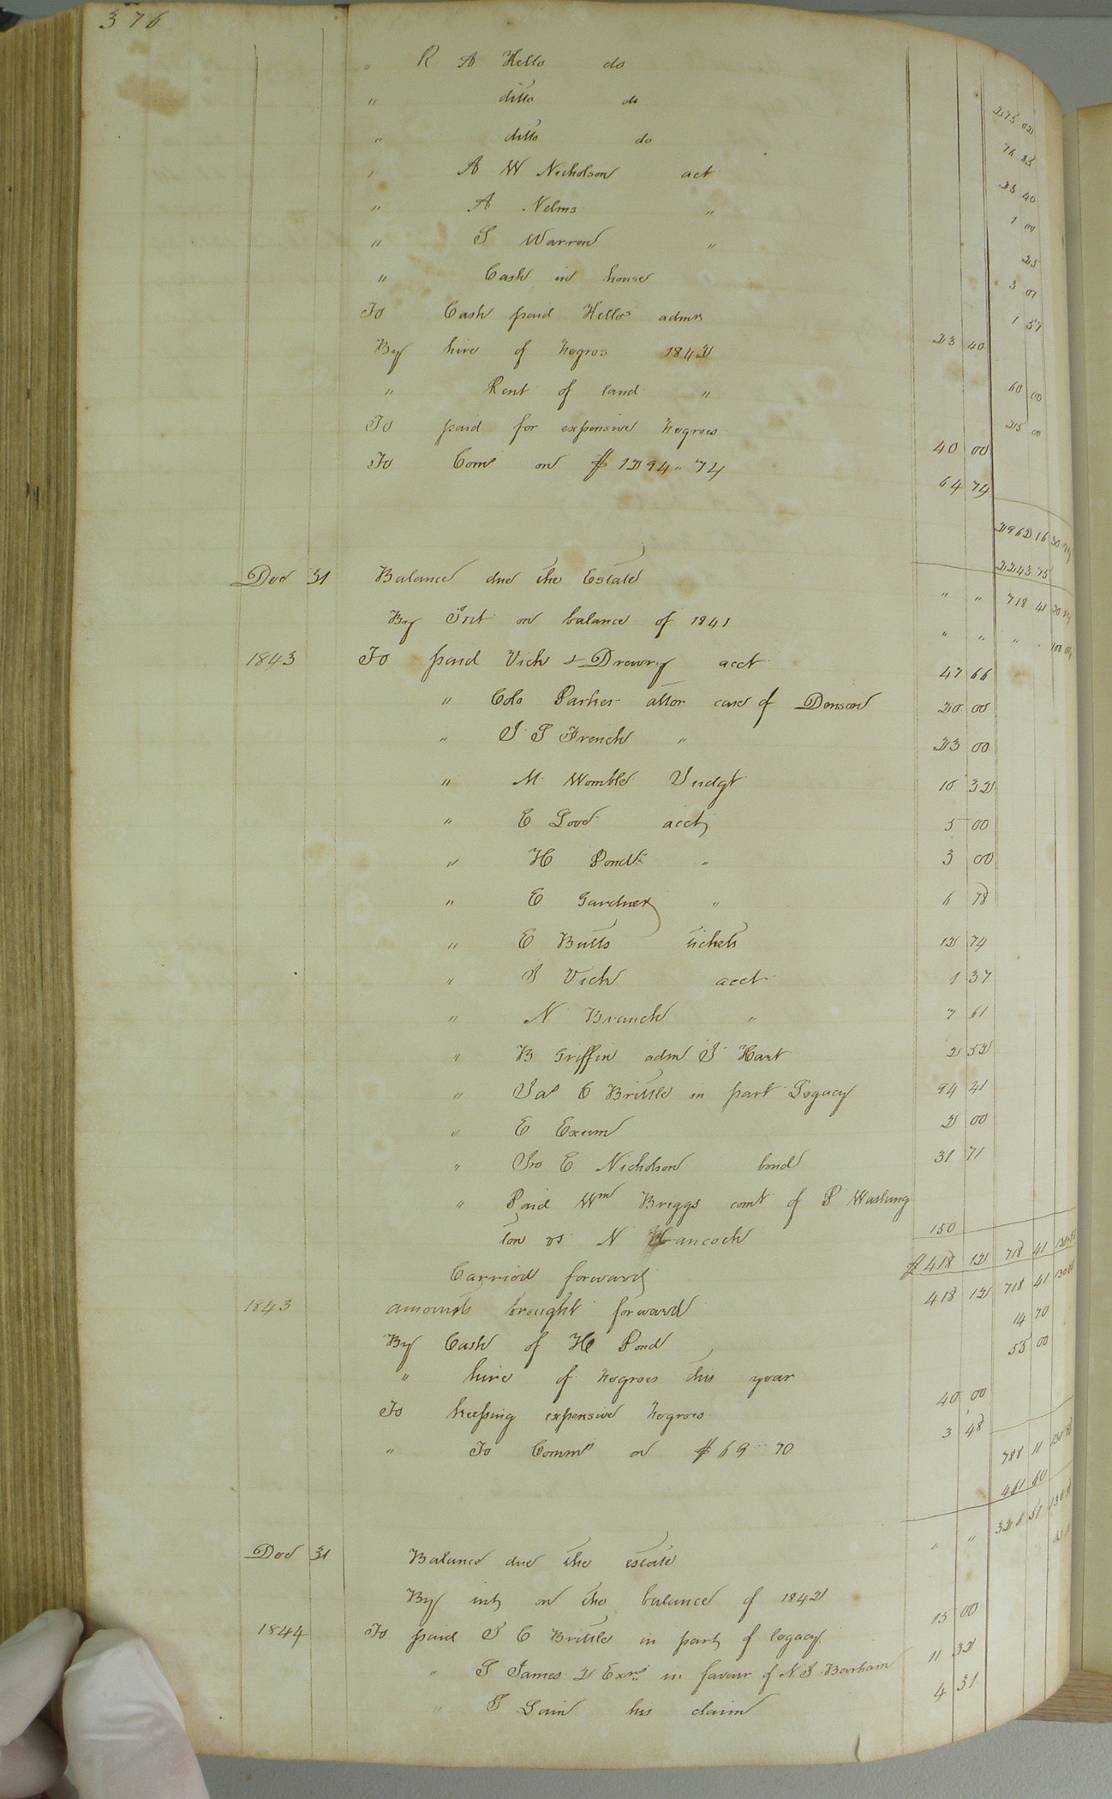 376
" R A Kello do 2175 02
" ditto do 76 85
" ditto do 25 40
" A W Nicholson act 1 00
" A Nelms " 25
" S Warren " 3 07
" Cash in house 1 57
To Cash paid Kello admr 23 40
By hire of Negroes 1842 60 00
" Rent of land " 25 00
To paid for expensive Negroes 40 00
To Com on $1294" 74 64 74
2962 16
2243 75
Dec 31 Balance due the Estate " " 718 41
By Int on balance of 1841 " " " "
1843 To paid Vick & Drewry acct 47 66
" Colo Parker attor case of Denson 20 00
" J T French " 23 00
" M Womble Judgt 10 32
" E acct 5 00
" H Pond " 3 00
" E Gardner " 6 78
" E Butts tickets 12 74
" J Vick acct 1 37
" N Branch " 7 61
" B Griffin adm J Hart 2 52
" Jas C Brittle in part Legacy 94 41
" E Exum 2 00
" Jno E Nicholson bond 31 71
" Paid Wm Briggs comt of P Washing
ton vs N Hancock 150
Carried forward $418 12 718 41
1843 amounts brought forward 418 12 718 41
By Cash of H Pond 14 70
" hire of Negroes this year 55 00
To keeping expensive Negroes 40 00
" To Comm on $69" 70 3 48
788 11
461 60
Dec 31 Balance due the estate " " 326 51
By int on the balance of 1842
1844 To paid J C Brittle in part of legacy 15 00
" T James 2 Exrs in favour of N. J Barham 11 32
" J Gain his claim 4 31